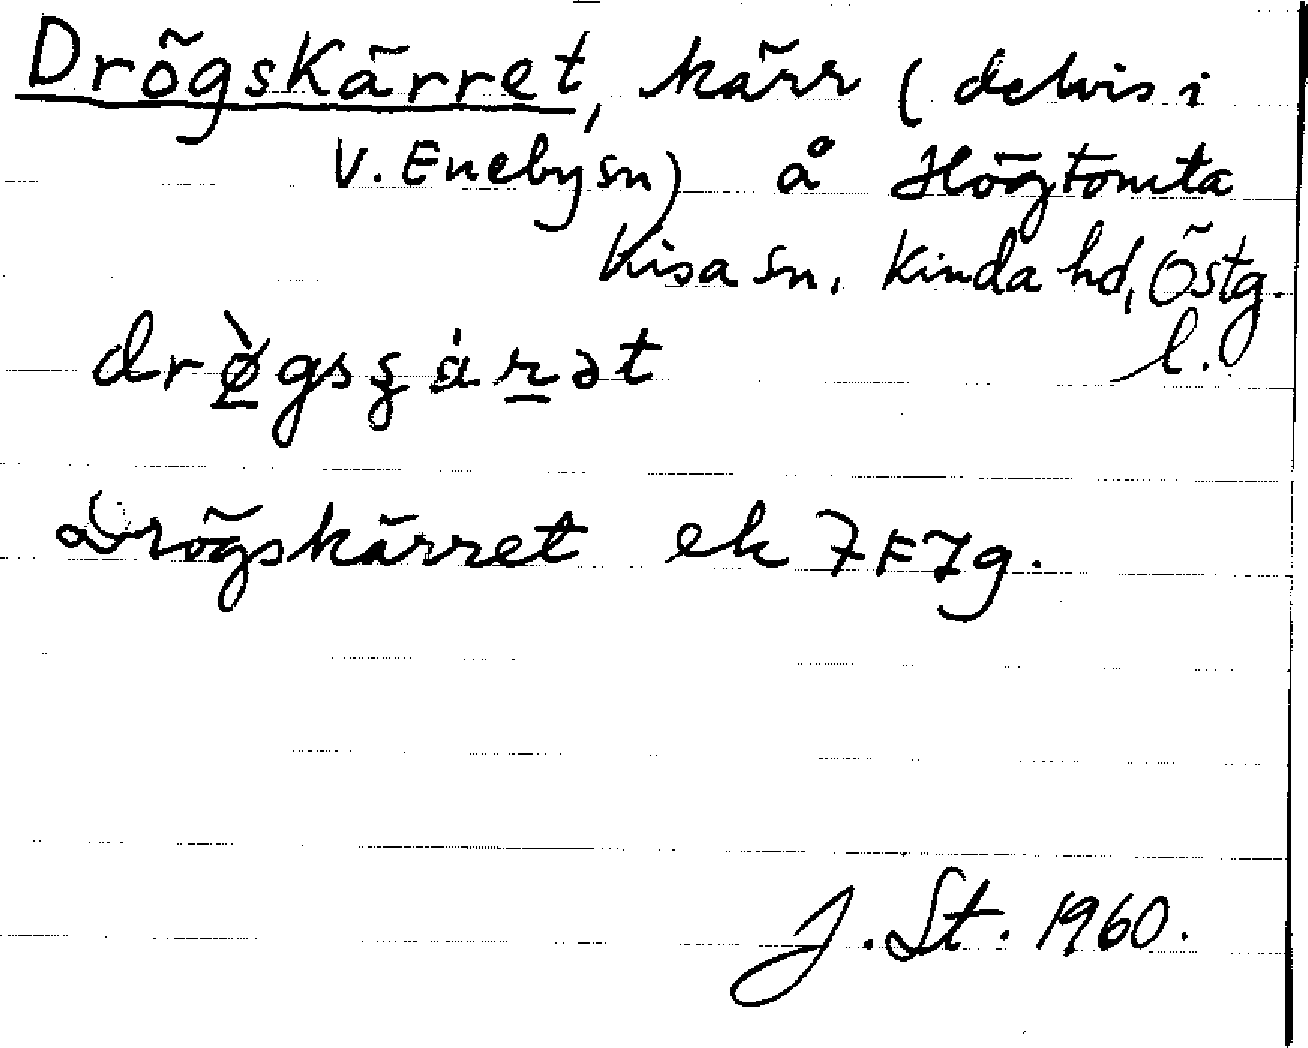 Drögskärret, kärr (delvis i
V. Eneby sn) å Högtomta
Kisa sn, Kinda hd, Östg.
l.
Drögskärret ek 7F7g.
J. St. 1960.